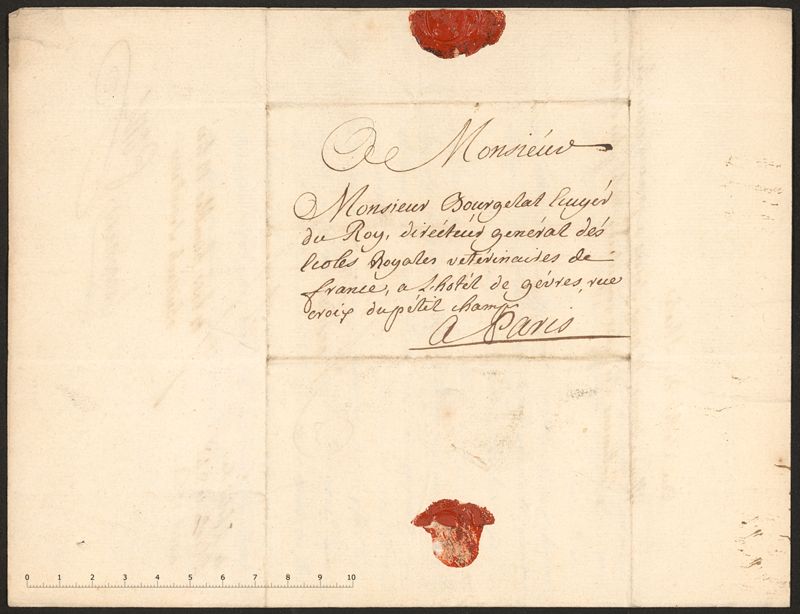 De Monsieur
Monsieur Bourgelat Ecuyér
du Roy, dirécteúr genéral dés
Ecoles Royales vetérinaires de
france, a L'hotél de gévres, rue
croix du pétit champ
a Paris
0 1 2 3 4 5 6 7 8 9 10